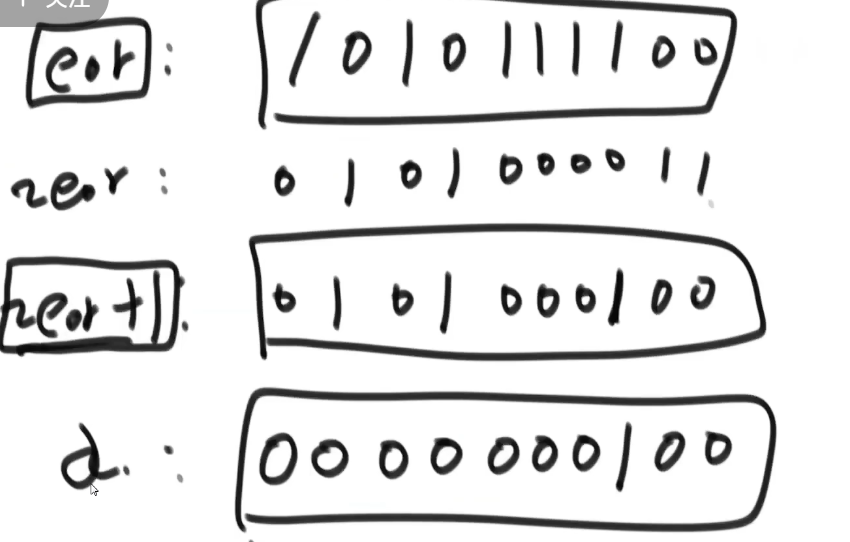 关注
eor : 1010111100
~eor : 0101000011
~eor+1 : 0101000100
d. : 0000000100